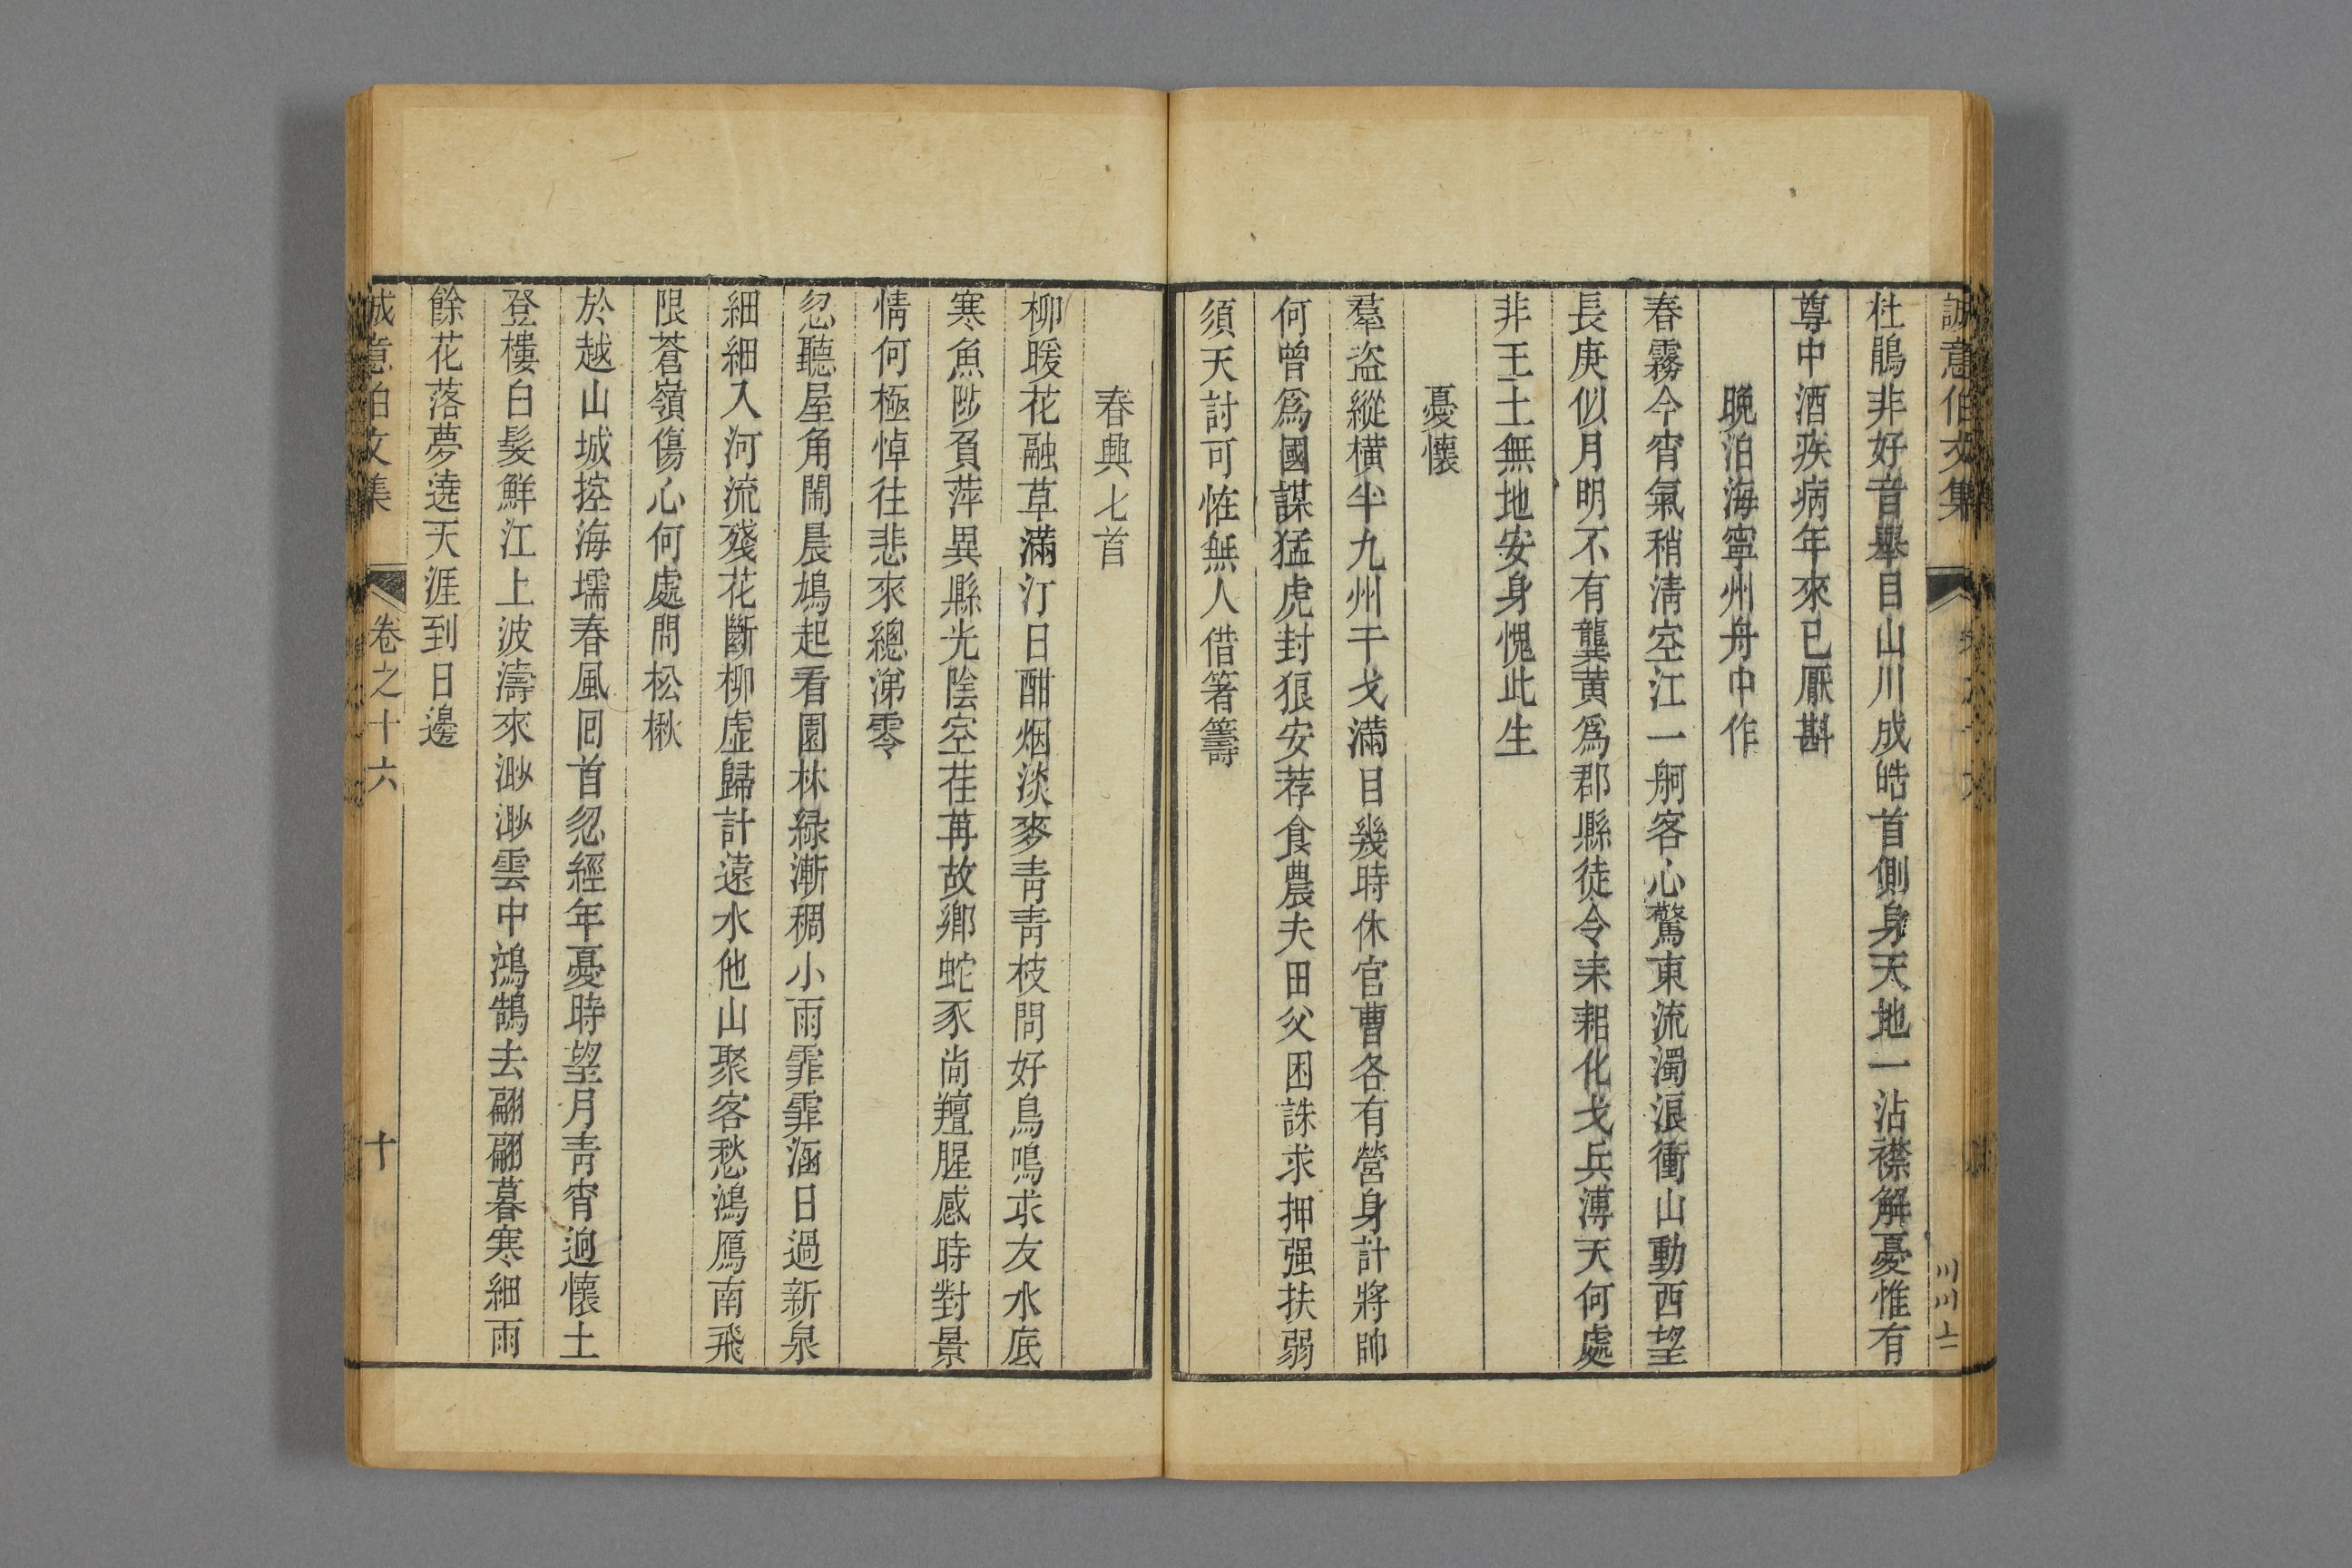 誠意伯文集
杜鵑非好音舉目山川成皓首側身天地一沾襟解憂惟有
尊中酒疾病年來已厭斟
晚泊海寧州舟中作
春霧今宵氣稍淸空江一舸客心驚東流濁浪衝山動西望
長庚似月明不有龔黄爲郡縣徒令耒耜化戈兵溥天何處
非王土無地安身愧此生
憂懷
羣盗縱橫半九州干戈滿目幾時休官曹各有營身計將帥
何曾爲國謀猛虎封狼安荐食農夫田父困誅求押强扶弱
須天討可恠無人借箸籌
春興七首
柳暖花融草滿汀日酣烟淡麥靑靑枝問好鳥鳴求友水底
寒魚陟負萍異縣光陰空荏苒故鄉蛇豕尚羶腥感時對景
情何極悼往悲來總涕零
忽聽屋角鬧晨鳩起看園林緑漸稠小雨霏霏涵日過新泉
細細入河流殘花斷柳虚歸計遠水他山聚客愁鴻鴈南飛
限蒼嶺傷心何處問松楸
於越山城控海壖春風回首忽經年憂時望月靑宵逈懷土
登樓白髮鮮江上波濤來渺渺雲中鴻鵠去翩翩暮寒細雨
餘花落夢遶天涯到日邊
誠意伯文集 卷之十六 十